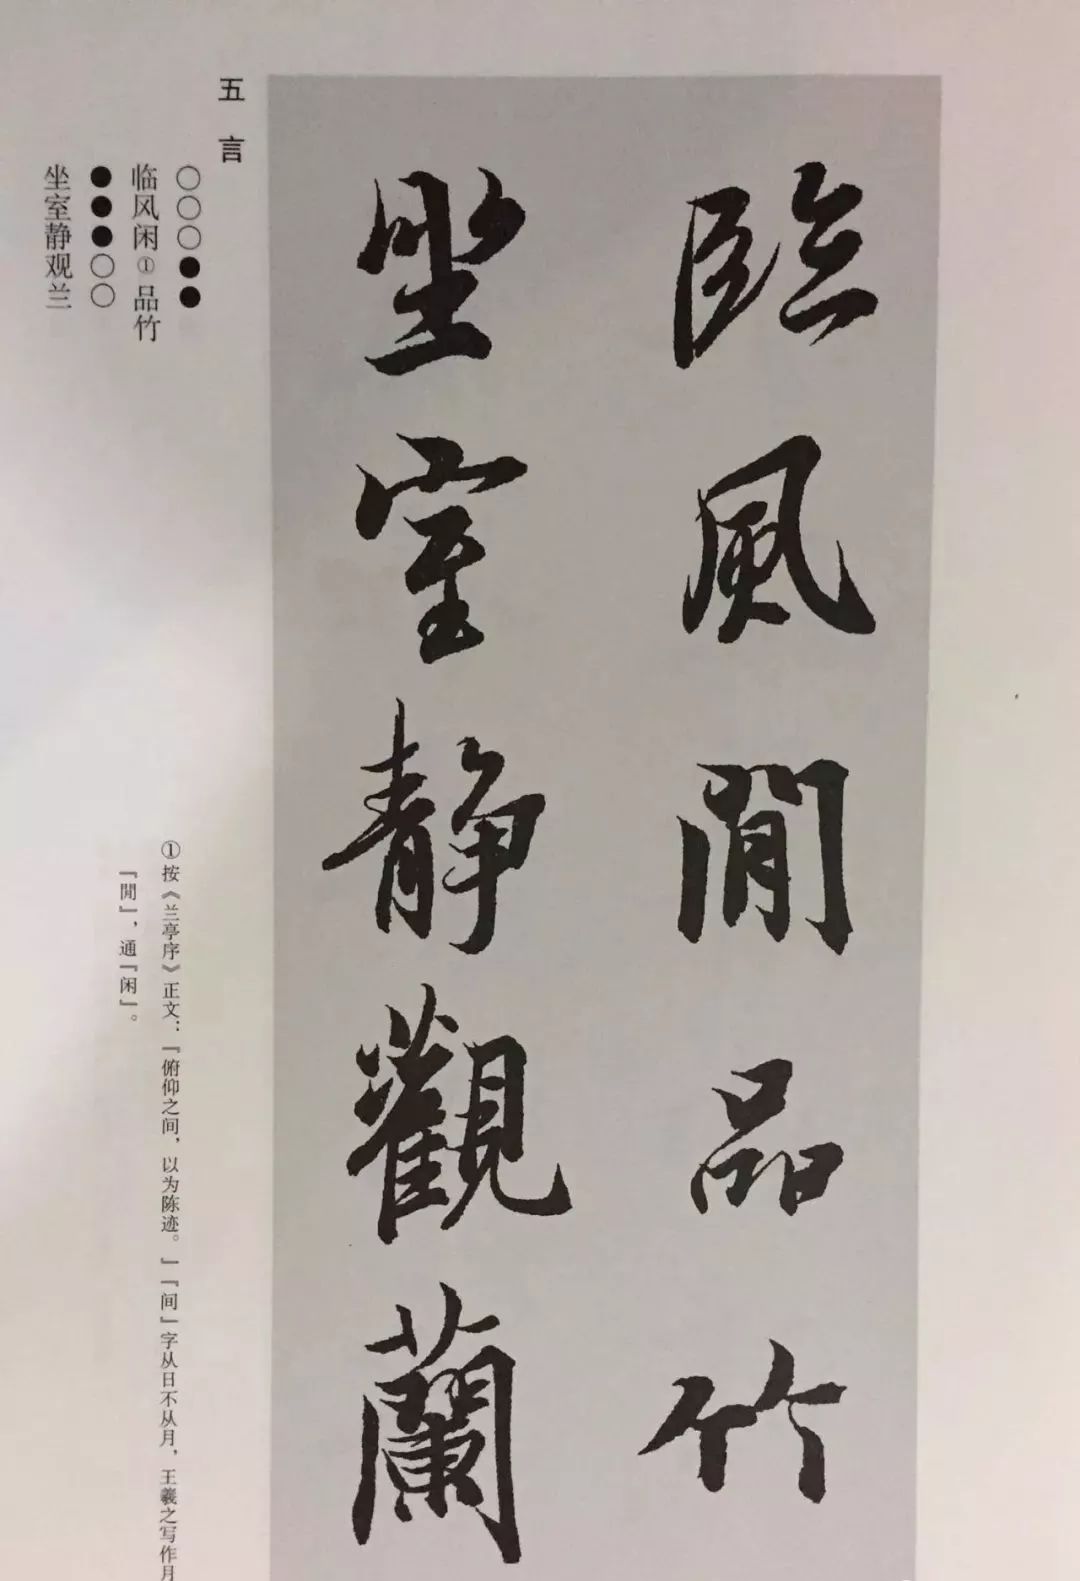 臨風閒品竹
坐室静觀蘭
五言
○○○●●
临风闲①品竹
●●●○○
坐室静观兰
①按《兰亭序》正文：『俯仰之间，以为陈迹。』『间』字从日不从月，王羲之写作月
『閒』，通『闲』。